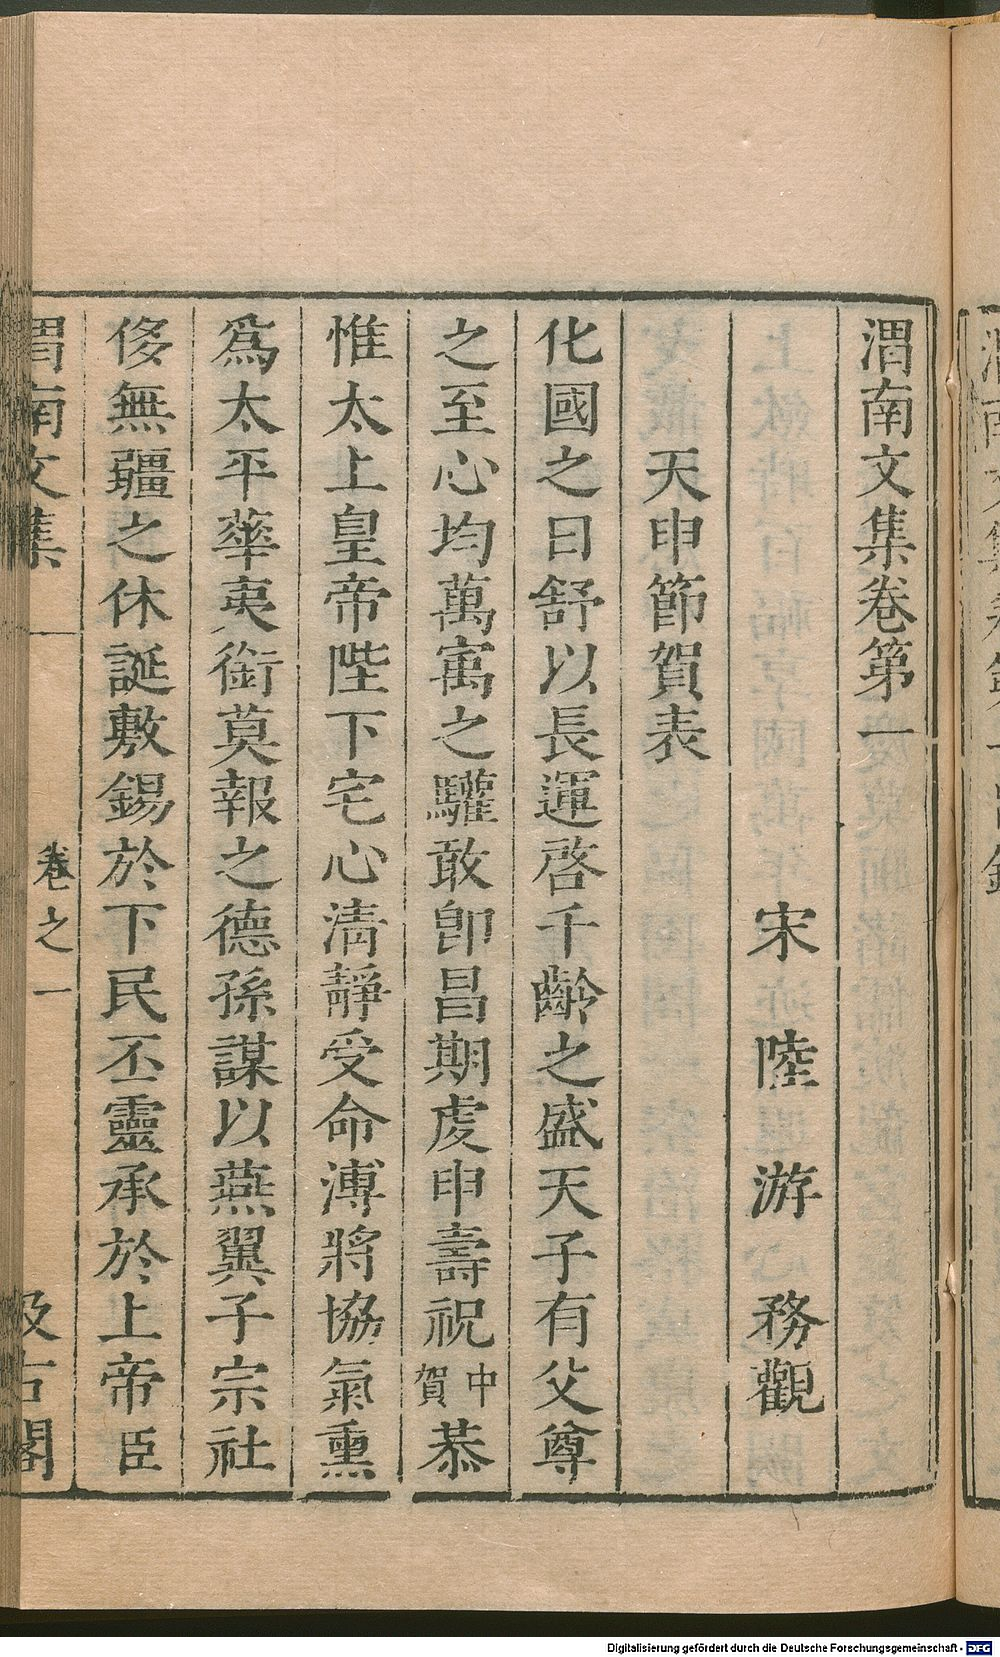 渭南文集卷第一
宋 陸 游 務觀
天申節賀表
化國之日舒以長運啓千齡之盛天子有父尊
之至心均萬㝢之驩敢卽昌期虔申壽祝中賀恭
惟太上皇帝陛下宅心淸靜受命溥將協氣熏
爲太平華夷銜莫報之德孫謀以燕翼子宗社
侈無疆之休誕敷錫於下民丕靈承於上帝臣
渭南文集 卷之一 汲古閣
Digitalisierung gefördert durch die Deutsche Forschungsgemeinschaft - DFG